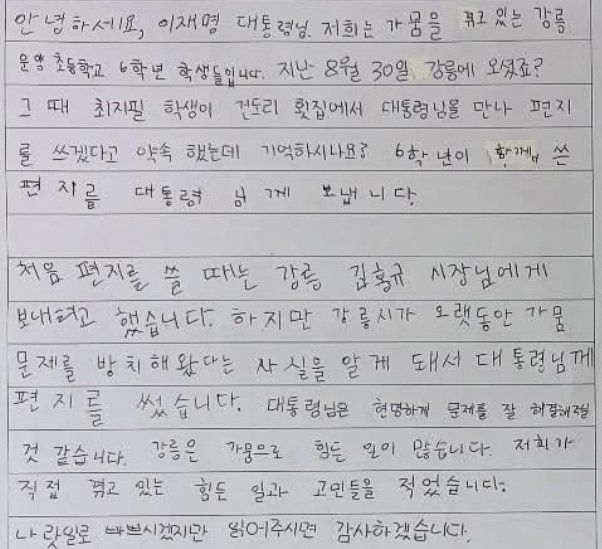 안녕하세요, 이재명 대통령님. 저희는 가뭄을 겪고 있는 강릉
운양 초등학교 6학년 학생들입니다. 지난 8월 30일 강릉에 오셨죠?
그 때 최지필 학생이 건도리 횟집에서 대통령님을 만나 편지
를 쓰겠다고 약속 했는데 기억하시나요? 6학년이 함께 쓴
편지를 대통령 님 께 보냅니다.
처음 편지를 쓸 때는 강릉 김홍규 시장님에게
보내려고 했습니다. 하지만 강릉시가 오랫동안 가뭄
문제를 방치해왔다는 사실을 알게 돼서 대통령님께
편지를 썼습니다. 대통령님은 현명하게 문제를 잘 해결해주실
것 같습니다. 강릉은 가뭄으로 힘든 일이 많습니다. 저희가
직접 겪고 있는 힘든 일과 고민들을 적었습니다.
나랏일로 바쁘시겠지만 읽어주시면 감사하겠습니다.